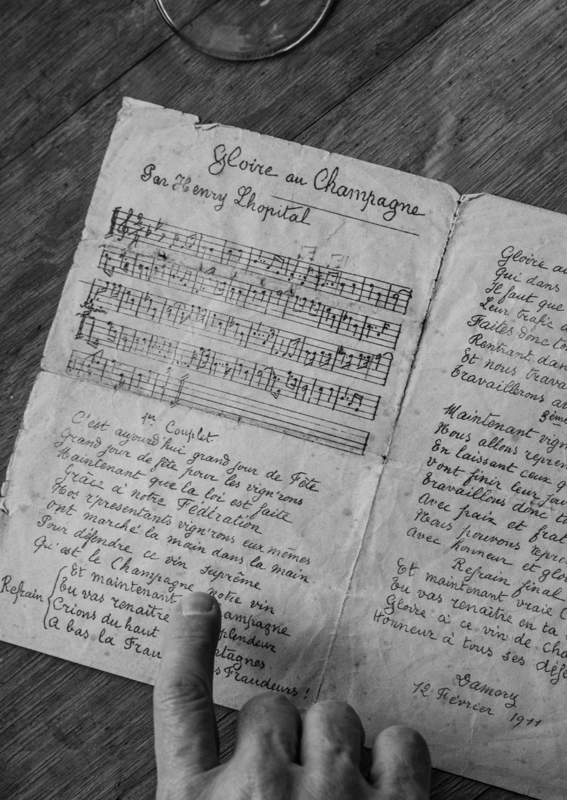 Gloire au Champagne
Par Henry Lhopital
1er Couplet
C'est aujourd'hui grand jour de Fête
Grand jour de fête pour les vign'rons
Maintenant que la loi est faite
Grâce à notre Fédération
Nos r'présentants vign'rons eux mêmes
Ont marché la main dans la main
Pour défendre ce vin suprême
Qu'est le Champagne notre vin
Refrain
Et maintenant
Tu vas renaître
Crions du haut
A bas la
Fraudeurs !
Gloire au
Qui dans
Il faut que
Leur trafic
Faites donc
Rentrant dans
Et nous
Travaillerons
3ème
Maintenant
Nous allons
En laissant ceux
Vont finir leur
Travaillons donc
Avec paix et
Nous pouvons
Avec honneur et
Refrain final
Et maintenant vraie
Tu vas renaître en ta
Gloire à ce vin de
Honneur à tous ses
Damery
12 Février 1911